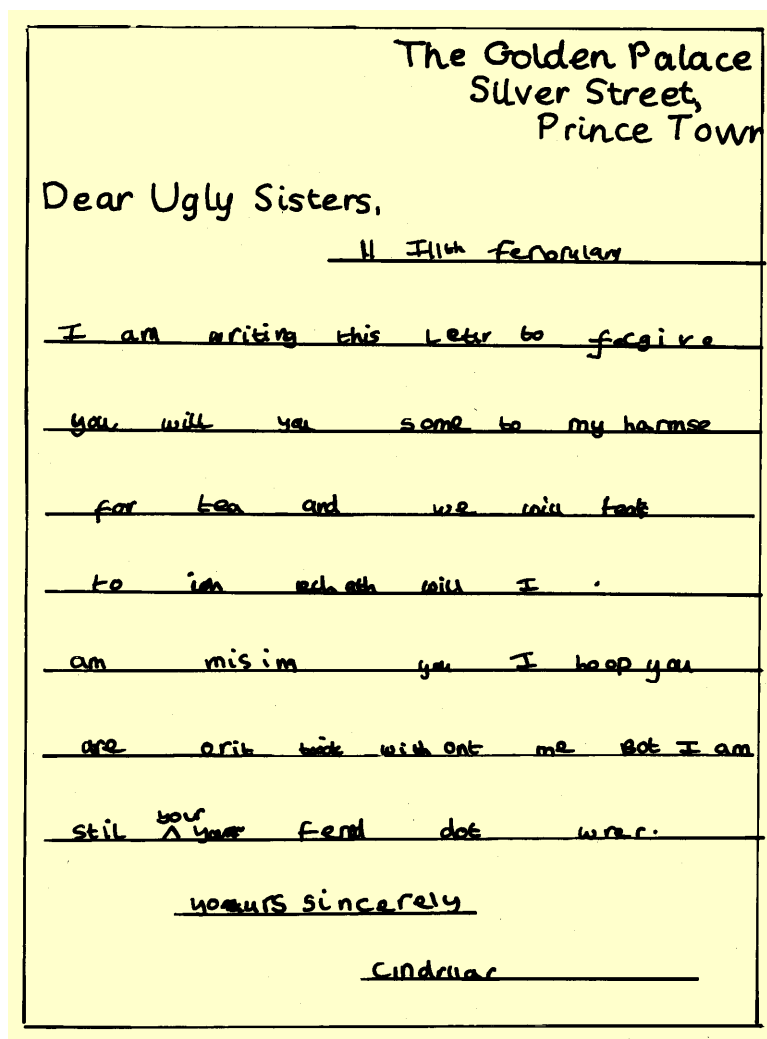 The Golden Palace
Silver Street,
Prince Town
Dear Ugly Sisters,
11
I am writing this Letur to forgive
you will you some to my harmse
for tea and we will
to will I .
am misim you I hoop you
are orit with ont me Bot I am
stil your fend dot wrer.
yours sincerely
Cindrilar